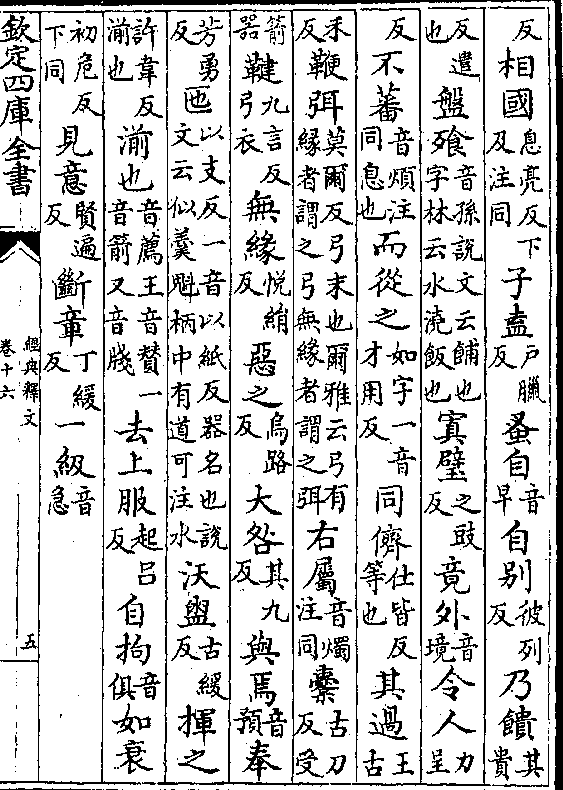 反相國息亮反下及注同子盍戶臘反蚤自音早自別彼列反乃饋其貴
反遺也盤飧音孫說文云餔也字林云水澆飯也寘璧之豉反竟外音境令人力呈
反不蕃音煩注同息也而從之如字一音才用反同儕仕皆反等也其過王古
禾反鞭弭莫爾反弓末也爾雅云弓有緣者謂之弓無緣者謂之弭右屬音燭注同櫜古刀反受
箭器鞬九言反弓衣無緣悅絹反惡之烏路反大咎其九反與焉音預奉
芳勇反匜以支反一音以紙反器名也說文云似羹魁柄中有道可注水沃盥古緩反揮之
許韋反湔也湔也音薦王音贊一音箭又音牋去上服起呂反自拘音俱如衰
初危反下同見意賢遍反斷章丁緩反一級音急
欽定四庫全書
經典釋文
卷十六
五